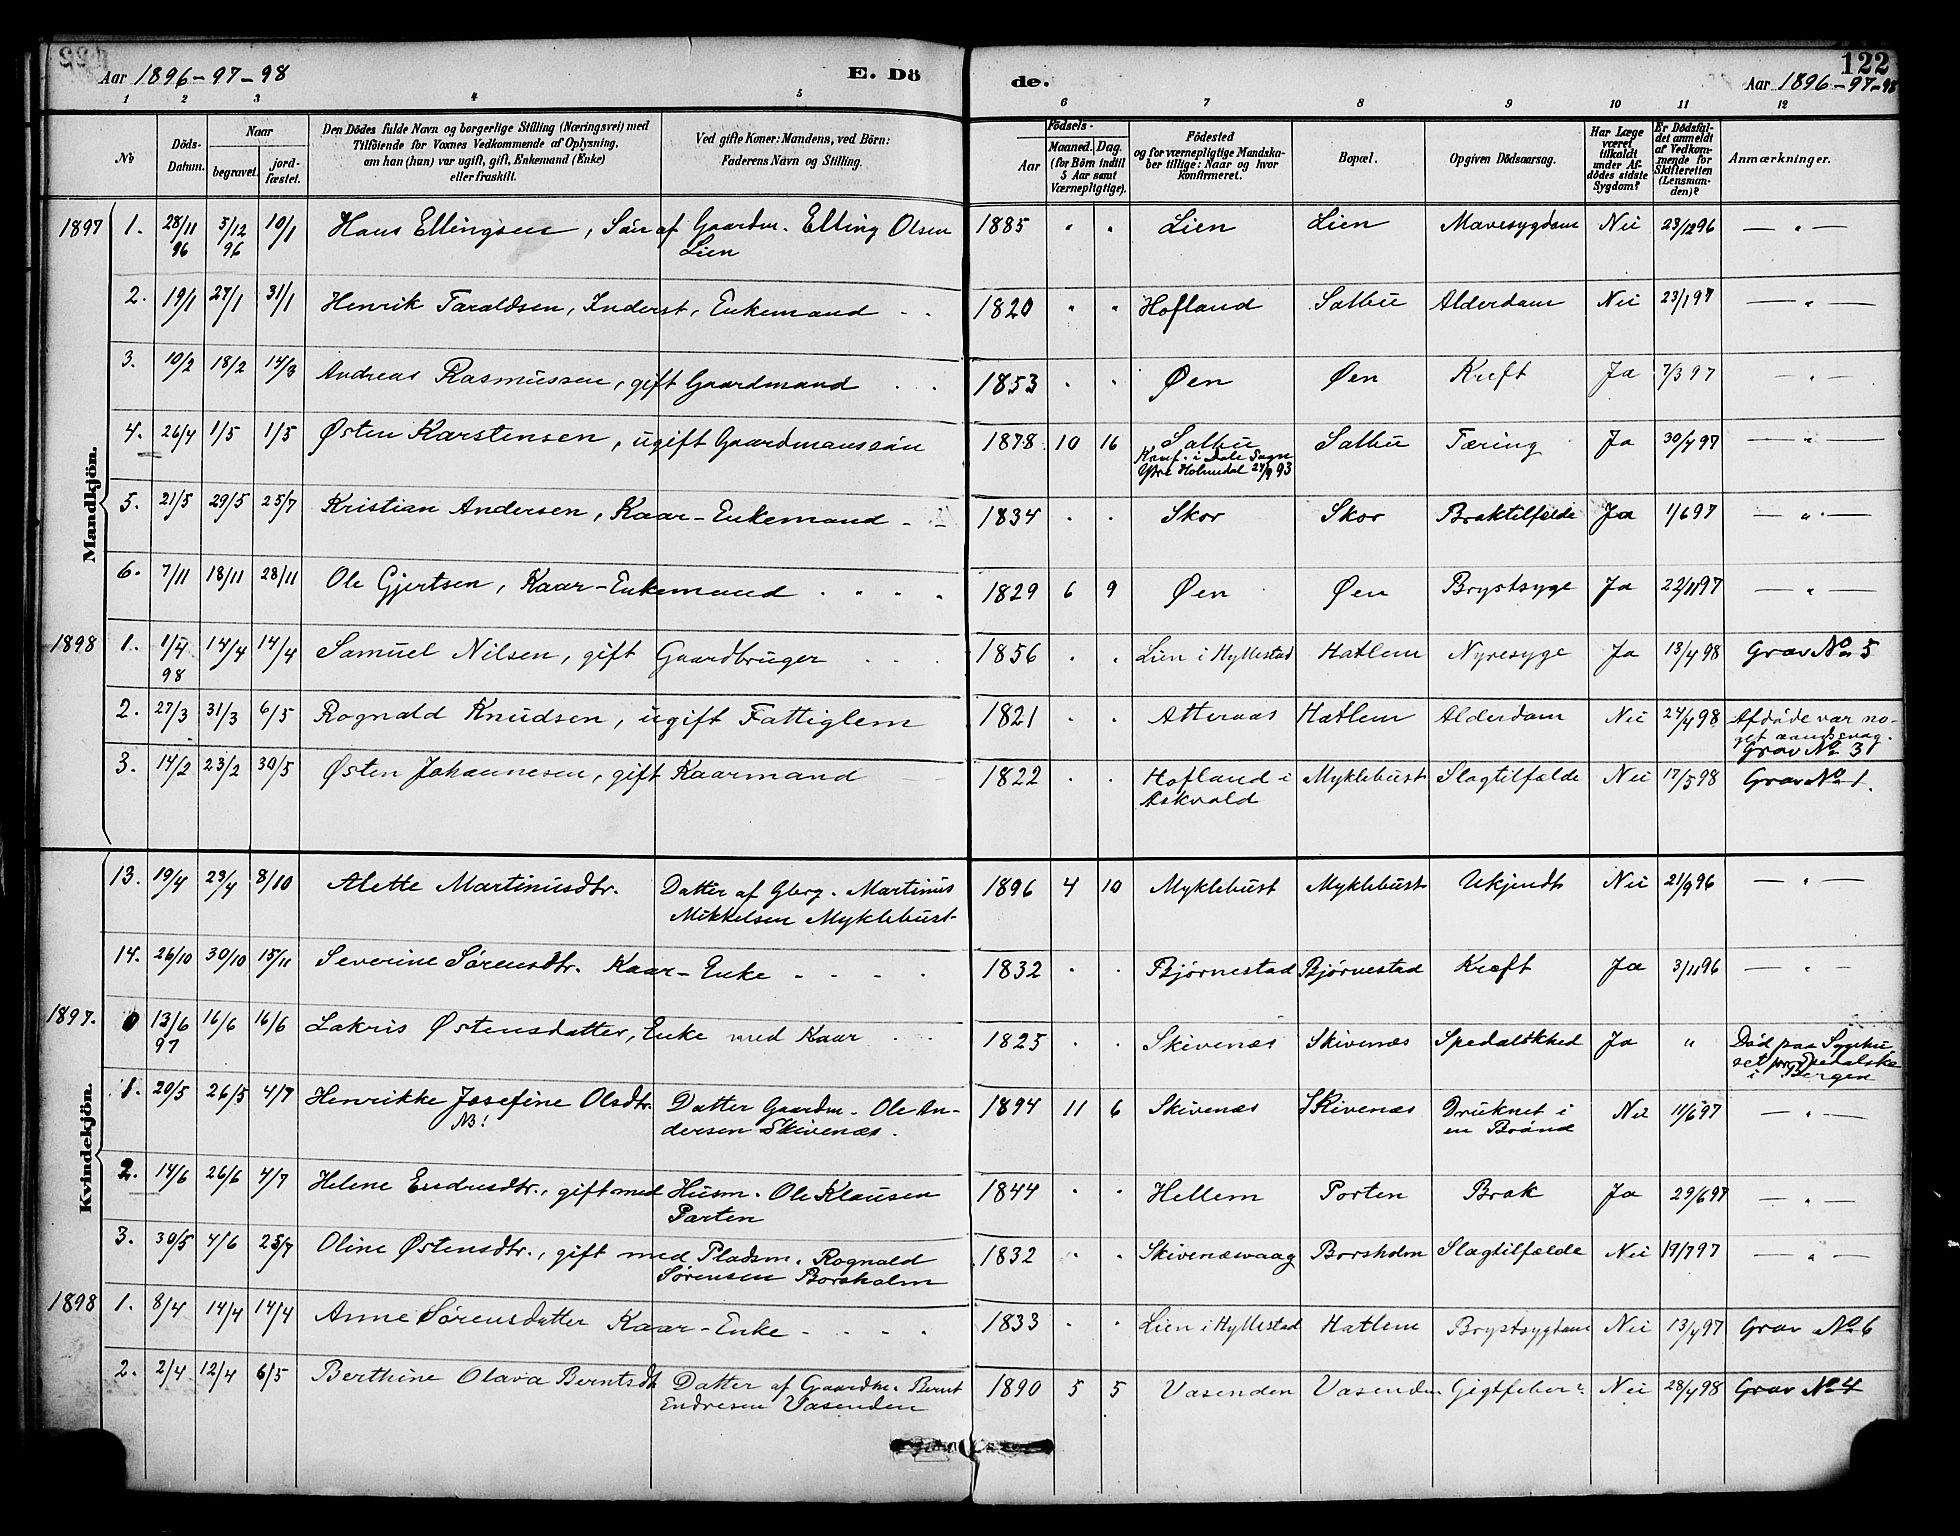 122
Aar 1896-97-98 E. Dö de. Aar 1896-97-98
1 2 3 4 5 6 7 8 9 10 11 12
No Döds-Datum. Naar begravet. jord-fæstet. Den Dödes fulde Navn og borgerlige Stilling (Næringsvei) med Tilföiende for Voxnes Vedkommende af Oplysning, om han (hun) var ugift, gift, Enkemand (Enke) eller fraskilt. Ved gifte Koner: Mandens, ved Börn: Faderens Navn og Stilling. Födsels- Aar Maaned. Dag. (for Börn indtil 5 Aar samt Værnepligtige). Födested og for værnepligtige Mandskaber tillige: Naar og hvor konfirmeret. Bopæl. Opgiven Dödsaarsag. Har Læge været tilkaldt under Afdödes sidste Sygdom? Er Dödsfaldet anmeldt af Vedkommende for Skifteretten (Lensmanden)? Anmærkninger.
Mandkjön.
1897 1. 28/11 96 5/12 96 10/1 Hans Ellingsen, Søn af Gaardm. Elling Olsen Lien 1885 " " Lien Lien Mavesygdom Nei 23/12 96 — " —
2. 19/1 27/1 31/1 Henrik Taraldsen, Inderst, Enkemand 1820 " " Hofland Salbu Alderdom Nei 23/1 97 — " —
3. 10/2 18/2 14/3 Andreas Rasmussen, gift Gaardmand 1853 " " Øen Øen Kreft Ja 7/3 97 — " —
4. 26/4 1/5 1/5 Østen Karstensen, ugift Gaardmanssøn 1878 10 16 Salbu Konf. i Dale Sogn Ytre Holmedal 24/9 93 Salbu Tæring Ja 30/4 97 — " —
5. 21/5 29/5 25/7 Kristian Andersen, Kaar-Enkemand 1834 " " Skor Skor Braktilfælde Ja 1/6 97 — " —
6. 7/11 18/11 28/11 Ole Gjertsen, Kaar-Enkemand 1829 6 9 Øen Øen Brystsyge Ja 22/11 97 — " —
1898 1. 1/4 98 14/4 14/4 Samuel Nilsen, gift Gaardbruger 1856 " " Lien i Hyllestad Hatlem Nyresyge Ja 13/4 98 Grav No 5
2. 27/3 31/3 6/5 Rognald Knudsen, ugift Fattiglem 1821 " " Atteraas Hatlem Alderdom Nei 24/4 98 Afdøde var noget aandssvag. Grav No 3
3. 14/2 23/2 30/5 Østen Johannesen, gift Kaarmand 1822 " " Hofland i Askvold Myklebust Slagtilfælde Nei 17/5 98 Grav No 1.
Kvindekjön.
13. 19/4 23/4 8/10 Alette Martinusdtr. Datter af Gbrg. Martinus Mikkelsen Myklebust 1896 4 10 Myklebust Myklebust Ukjendt Nei 21/9 96 — " —
14. 26/10 30/10 15/11 Severine Sørensdtr. Kaar-Enke 1832 " " Bjørnestad Bjørnestad Kreft Ja 3/11 96 — " —
1897. 0 13/6 97 16/6 16/6 Lakris Østensdatter, Enke med Kaar 1825 " " Skivenæs Skivenæs Spedalskhed Ja " Død paa Sygehuset for Spedalske i Bergen
1. 20/5 26/5 4/7 Henrikke Josefine Olsdtr. NB! Datter Gaardm. Ole Andersen Skivenæs. 1894 11 6 Skivenæs Skivenæs Druknet i en Brønd Nei 11/6 97 — " —
2. 14/6 26/6 4/7 Helene Endresdtr., gift med Husm. Ole Klausen Porten 1844 " " Hellem Porten Brok Ja 29/6 97 — " —
3. 30/5 4/6 25/7 Oline Østensdtr., gift med Pladsm. Rognald Sørensen Borsholm 1832 " " Skivenæsvaag Borsholm Slagtilfælde Nei 19/7 97 — " —
1898 1. 8/4 14/4 14/4 Anne Sørensdatter Kaar-Enke 1833 " " Lien i Hyllestad Hatlem Brystsygdom Nei 13/4 97 Grav No 6
2. 2/4 12/4 6/5 Berthine Olava Berntsdt Datter af Gaardm. Bernt Endresen Vasenden 1890 5 5 Vasenden Vasenden Gigtfeber Nei 28/4 98 Grav No 4